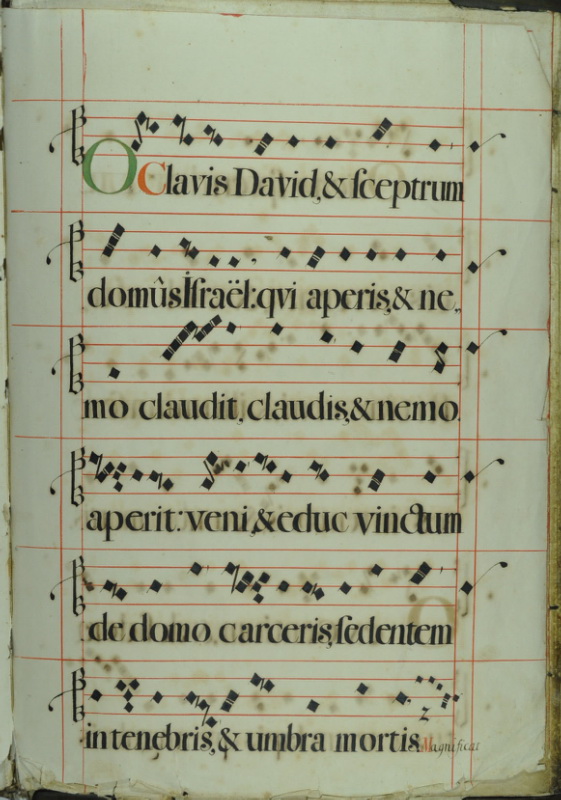 O Clavis David, & sceptrum
domûs Israël: qvi aperis, & ne-
mo claudit, claudis, & nemo
aperit: veni, & educ vinctum
de domo carceris, sedentem
in tenebris, & umbra mortis. Magnificat